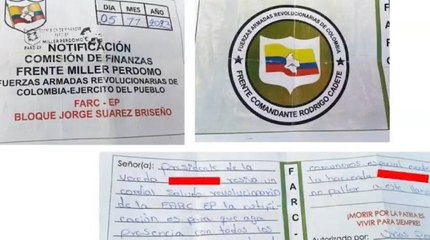 DIA MES AÑO
05
MILLER PERDOMO
FARC-EP
NOTIFICACIÓN
COMISIÓN DE FINANZAS
FRENTE MILLER PERDOMO
FUERZAS ARMADAS REVOLUCIONARIAS DE
COLOMBIA-EJERCITO DEL PUEBLO
FARC - EP
BLOQUE JORGE SUAREZ BRISEÑO
FUERZAS ARMADAS REVOLUCIONARIAS DE COLOMBIA
FRENTE COMANDANTE RODRIGO CADETE
Señor(a): presidente de la
Vereda
cordial saludo revolucionario
de la FARC EP la
es para que aga
presencia con todos los
FARC-
la hacienda
no faltar a este
¡MORIR POR LA PATRIA ES
VIVIR PARA SIEMPRE!
Autorizado por: